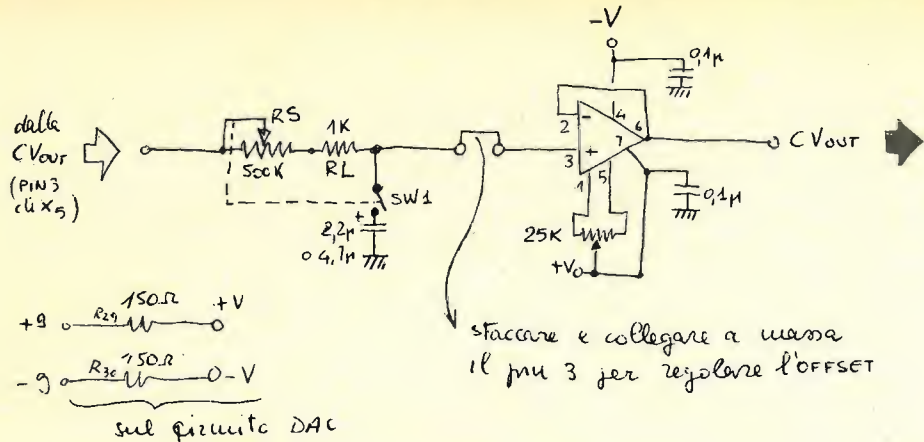 -V
0,1µ
dalla
CVOUT
(PIN3
di X5)
RS
500K
1K
RL
SW1
+
2,2µ
o 4,7µ
2
-
4
6
7
3
+
1
5
CVOUT
0,1µ
25K
+V
+9
R29
150Ω
+V
-9
R30
150Ω
-V
sul circuito DAC
staccare e collegare a massa
il pin 3 per regolare l'OFFSET